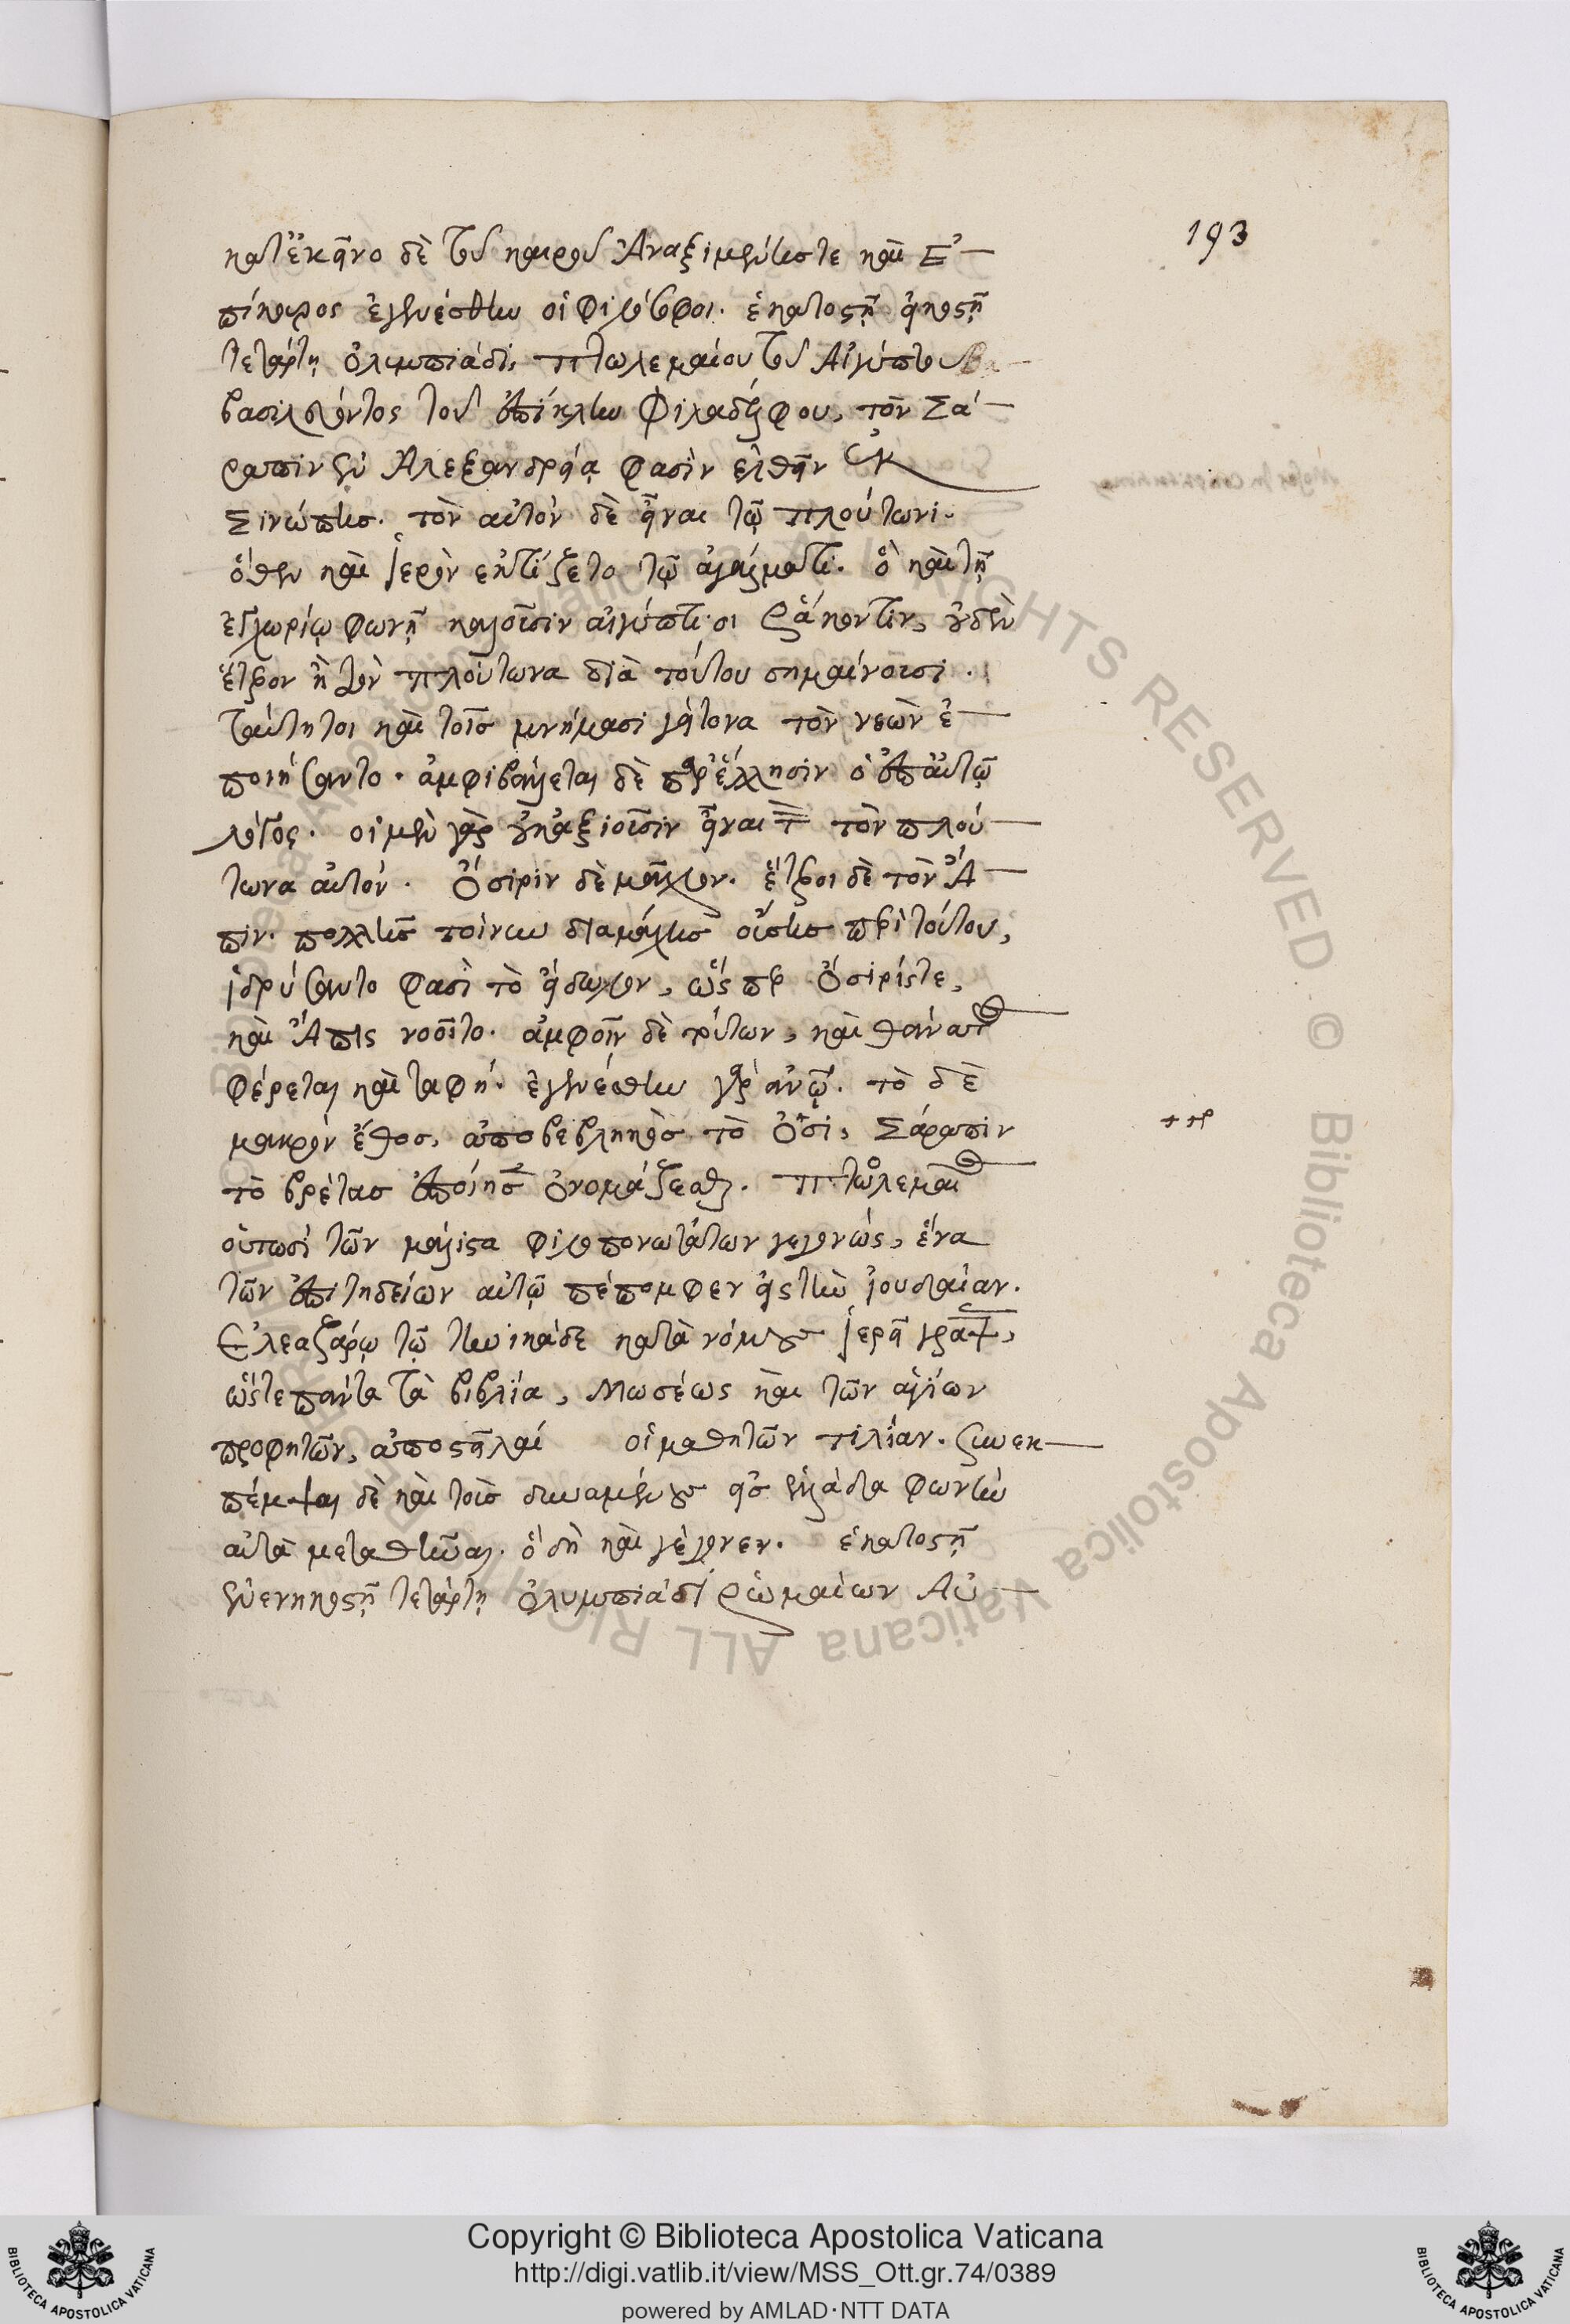 193
κατ' ἐκεῖνο δὲ τοῦ καιροῦ Ἀναξιμένης τε καὶ Ἐ-
πίκουρος ἐγενέσθην οἱ φιλόσοφοι. ἑκατοστῇ εἰκοστῇ
τετάρτῃ ὀλυμπιάδι, Πτολεμαίου τοῦ Αἰγύπτου
βασιλεύοντος τοῦ ἐπίκλην Φιλαδέλφου, τὸν Σά-
ραπιν ἐν Ἀλεξανδρείᾳ φασὶν ἐλθεῖν ἐκ
Σινώπης. τὸν αὐτὸν δὲ εἶναι τῷ Πλούτωνι.
ὅθεν καὶ ἱερὸν ἐκτίζετο τῷ ἀγάλματι. ὃ καὶ τῇ
ἐγχωρίῳ φωνῇ καλοῦσιν αἰγύπτιοι Ῥάκοντιν, οὐδὲν
ἕτερον ἢ τὸν Πλούτωνα διὰ τούτου σημαίνουσι.
ταύτῃ τοι καὶ τοῖς μνήμασι γείτονα τὸν νεὼν ἐ-
ποιήσαντο. ἀμφιβάλλεται δὲ παρ' ἕλλησιν ὁ ἐπ' αὐτῷ
λόγος. οἱ μὲν γὰρ οὐκ ἀξιοῦσιν εἶναι τὸν πλού-
τωνα αὐτόν. Ὄσιριν δὲ μᾶλλον. ἕτεροι δὲ τὸν Ἄ-
πιν. πολλῆς τοίνυν διαμάχης οὔσης περὶ τούτου,
ἱδρύσαντο φασὶ τὸ εἴδωλον, ὥσπερ Ὄσιρίς τε,
καὶ Ἆπις νοοῖτο. ἀμφοῖν δὲ τούτων, καὶ θάνατος
φέρεται καὶ ταφή. ἐγενέσθην γὰρ ἀνθρώπω. τὸ δὲ
μακρὸν ἔθος, ἀποβεβληκὸς τὸ Ὀσι, Σάραπιν
τὸ βρέτας ἐποίησεν ὀνομάζεσθαι. Πτολεμαῖος
οὑτωσὶ τῶν μάλιστα φιλοπονωτάτων γεγονώς, ἕνα
τῶν ἐπιτηδείων αὐτῷ πέπομφεν εἰς τὴν ἰουδαίαν.
Ἐλεαζάρῳ τῷ τηνικάδε κατὰ νόμους ἱερᾷ γράψ,
ὥστε πάντα τὰ βιβλία, Μωσέως καὶ τῶν ἁγίων
προφητῶν, ἀποστεῖλαί οἱ μαθητῶν τιλίαν. συνεκ-
πέμψαι δὲ καὶ τοὺς δυναμένους εἰς ἑλλάδα φωνὴν
αὐτὰ μεταθεῖναι. ὃ δὴ καὶ γέγονεν. ἑκατοστῇ
ἐνενηκοστῇ τετάρτῃ ὀλυμπιάδι ῥωμαίων Αὐ-
Copyright © Biblioteca Apostolica Vaticana
http://digi.vatlib.it/view/MSS_Ott.gr.74/0389
powered by AMLAD·NTT DATA